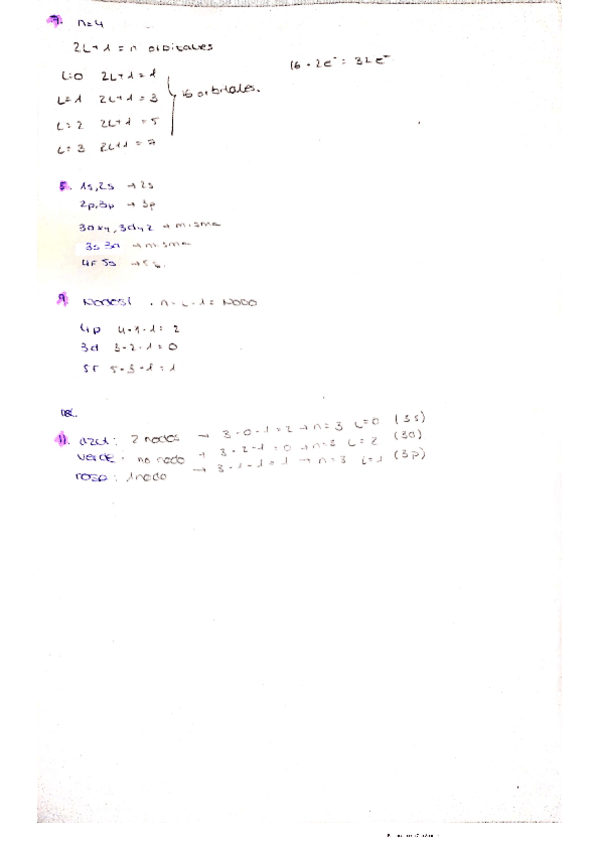 7. n=4
2L+1 = n orbitales
L=0 2L+1=1
L=1 2L+1=3
L=2 2L+1=5
L=3 2L+1=7
16 orbitales.
16 · 2e⁻ = 32e⁻
8. 1s, 2s → 2s
2p, 3p → 3p
3dxy, 3dyz → misma
3s 3d → misma
4f 5s → 5s.
9. Nodes: n-L-1 = NODO
4p 4-1-1 = 2
3d 3-2-1 = 0
5f 5-3-1 = 1
11. azul: 2 nodes → 3-0-1=2 → n=3 L=0 (3s)
verde: no nodo → 3-2-1=0 → n=3 L=2 (3d)
rosa: 1 nodo → 3-1-1=1 → n=3 L=1 (3p)